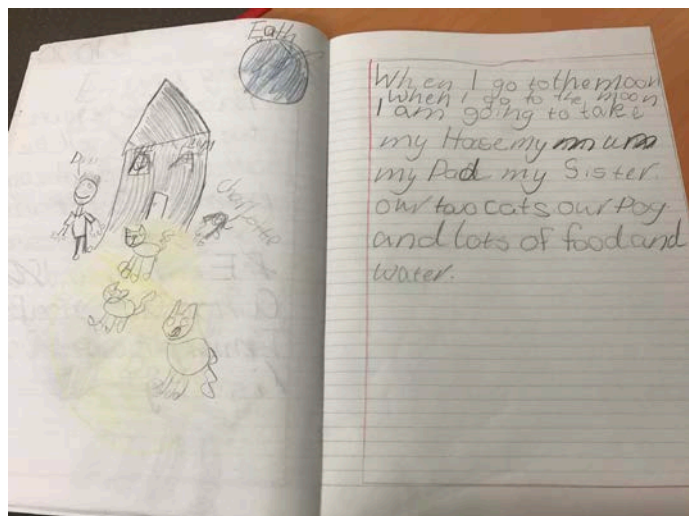 Eath
Charlotte
When I go to the moon
When I go to the moon
I am going to take
my Hose my mum
my Dad my Sister.
our two cats our Dog
and lots of food and
water.